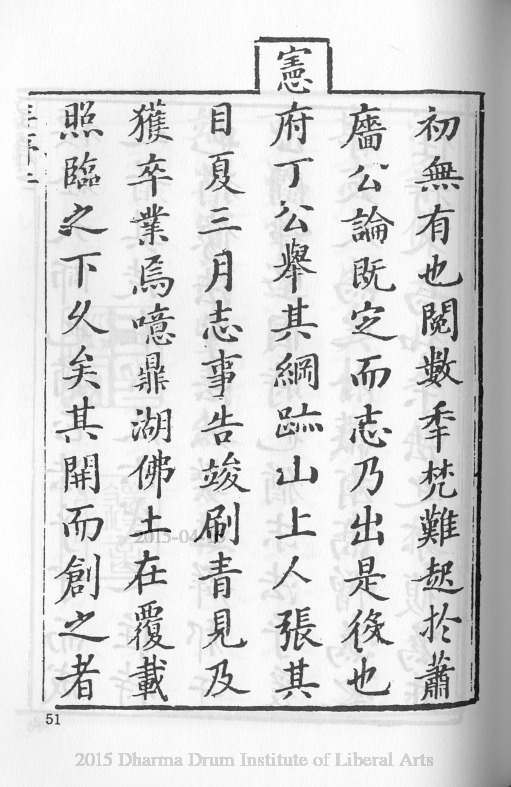 初無有也閱數秊梵難起於蕭
牆公論既定而志乃出是後也
憲
府丁公舉其綱跡山上人張其
目夏三月志事告竣刷青見及
獲卒業焉噫鼎湖佛土在覆載
照臨之下久矣其開而創之者
51
2015-04
2015 Dharma Drum Institute of Liberal Arts